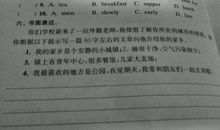 ( ) 9. A. tea B. breakfast C. supper D.
( ) 10. A. soon B. slowly C. early D. late
六、书面表达。
你们学校新来了一位外籍老师,他很想了解你所在的城市的情况,
你根据以下提示写一篇 60 字左右的文章向他介绍你的家乡。
1. 我的家乡是个安静的小城镇; 2. 她很干净,空气污染较少;
3. 镇上有青年中心,很多餐馆,几家大卖场;
4. 我最喜欢的地方是公园,在星期天,我常和朋友们一起去野餐。